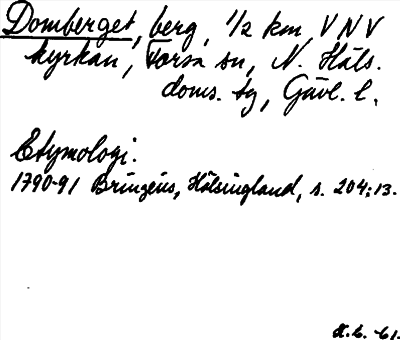 Domberget, berg, 1/2 km V N V
kyrkan, Forsa sn, N. Häls.
doms. tg, Gävl. l.
Etymologi.
1790-91 Bringéus, Hälsingland, s. 204:13.
-61.